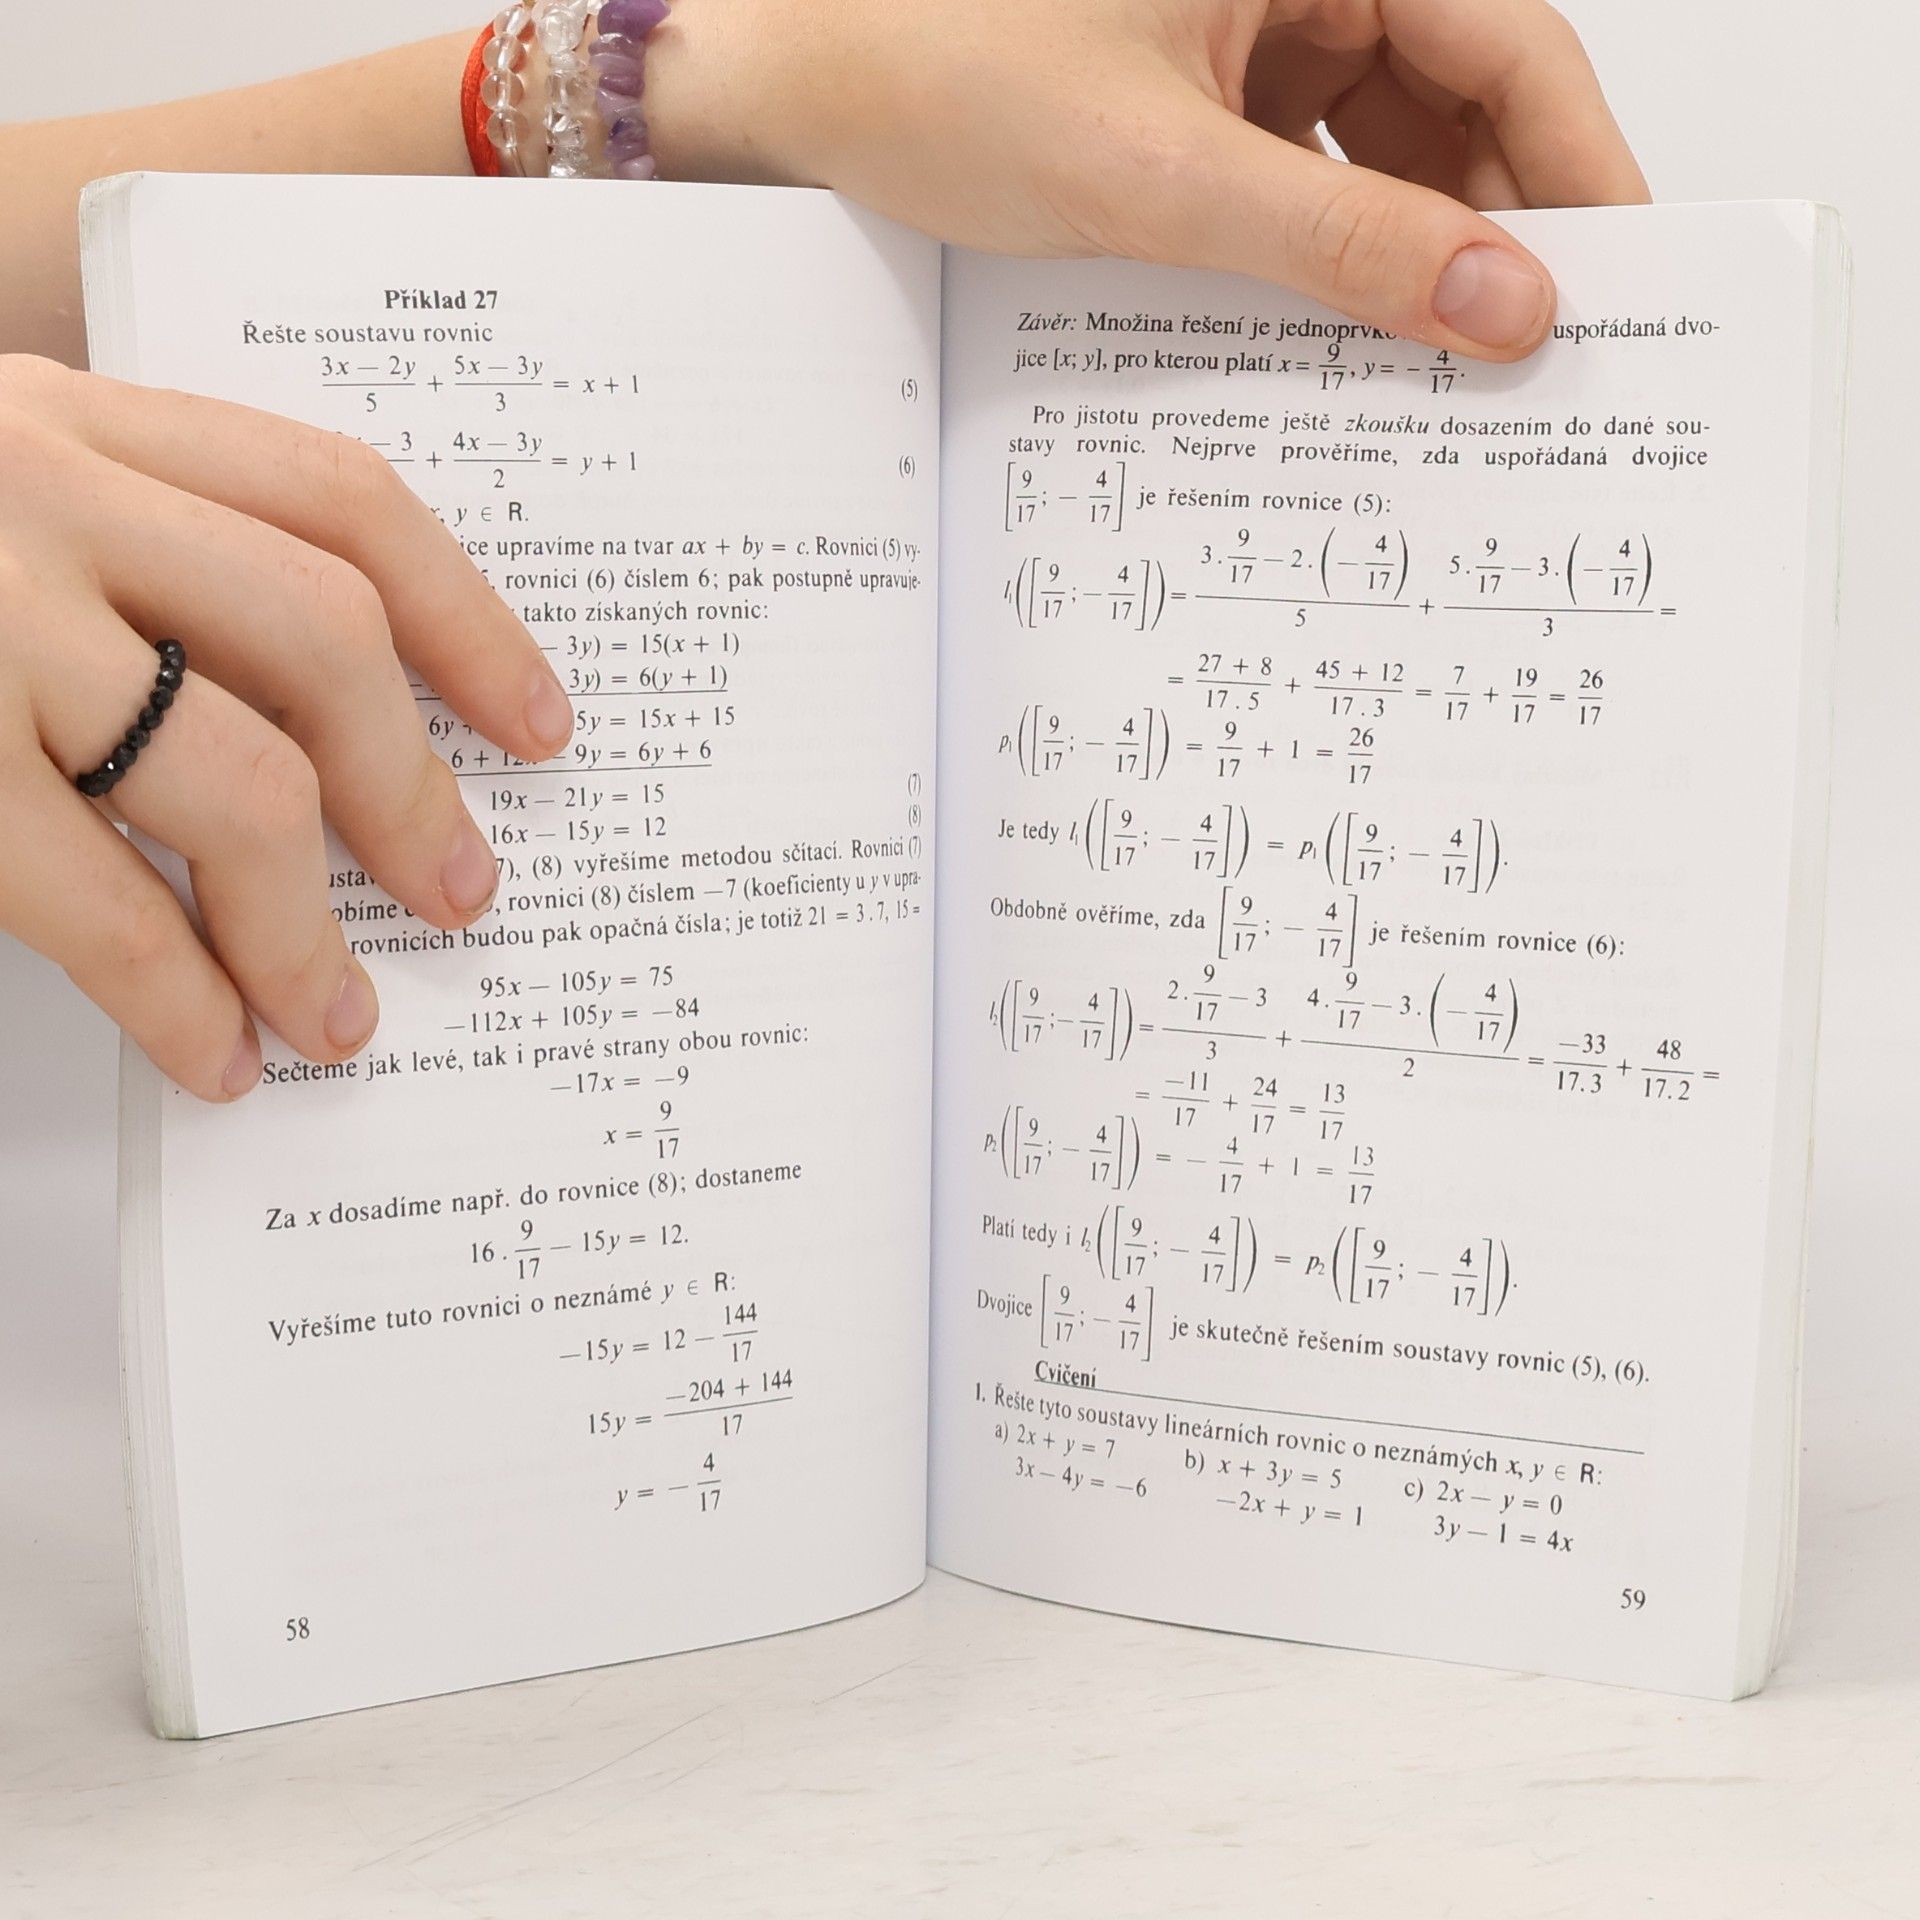 Příklad 27
Řešte soustavu rovnic
(3x — 2y)/5 + (5x — 3y)/3 = x + 1 (5)
— 3 + (4x — 3y)/2 = y + 1 (6)
y ∈ R.
upravíme na tvar ax + by = c. Rovnici (5) vy-
rovnici (6) číslem 6; pak postupně upravuje-
takto získaných rovnic:
— 3y) = 15(x + 1)
3y) = 6(y + 1)
6y 5y = 15x + 15
6 + — 9y = 6y + 6
19x — 21y = 15 (7)
16x — 15y = 12 (8)
(8) vyřešíme metodou sčítací. Rovnici (7)
rovnici (8) číslem —7 (koeficienty u y v upra-
rovnicích budou pak opačná čísla; je totiž 21 = 3.7, 15 =
95x — 105y = 75
—112x + 105y = —84
Sečteme jak levé, tak i pravé strany obou rovnic:
—17x = —9
x = 9/17
Za x dosadíme např. do rovnice (8); dostaneme
16 . 9/17 — 15y = 12.
Vyřešíme tuto rovnici o neznámé y ∈ R:
—15y = 12 — 144/17
15y = (—204 + 144)/17
y = — 4/17
58
Závěr: Množina řešení je uspořádaná dvo-
jice [x; y], pro kterou platí x = 9/17, y = — 4/17.
Pro jistotu provedeme ještě zkoušku dosazením do dané sou-
stavy rovnic. Nejprve prověříme, zda uspořádaná dvojice
[9/17; — 4/17] je řešením rovnice (5):
l₁([9/17; — 4/17]) = (3 . 9/17 — 2 . (— 4/17))/5 + (5 . 9/17 — 3 . (— 4/17))/3 =
= (27 + 8)/(17 . 5) + (45 + 12)/(17 . 3) = 7/17 + 19/17 = 26/17
p₁([9/17; — 4/17]) = 9/17 + 1 = 26/17
Je tedy l₁([9/17; — 4/17]) = p₁([9/17; — 4/17]).
Obdobně ověříme, zda [9/17; — 4/17] je řešením rovnice (6):
l₂([9/17; — 4/17]) = (2 . 9/17 — 3)/3 + (4 . 9/17 — 3 . (— 4/17))/2 = —33/(17. 3) + 48/(17. 2) =
= —11/17 + 24/17 = 13/17
p₂([9/17; — 4/17]) = — 4/17 + 1 = 13/17
Platí tedy i l₂([9/17; — 4/17]) = p₂([9/17; — 4/17]).
Dvojice [9/17; — 4/17] je skutečně řešením soustavy rovnic (5), (6).
Cvičení
1. Řešte tyto soustavy lineárních rovnic o neznámých x, y ∈ R:
a) 2x + y = 7 b) x + 3y = 5 c) 2x — y = 0
3x — 4y = —6 —2x + y = 1 3y — 1 = 4x
59